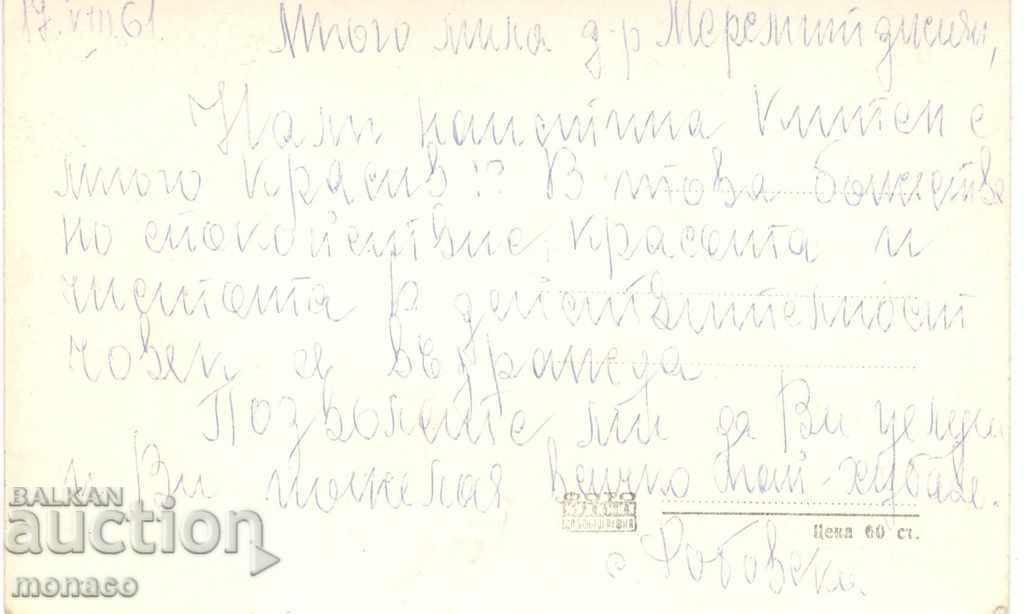 17.VIII.61.
Много мила д-р Меремитджиян,
Нали наистина Клитен е
много красив!? В това божестве
но спокойствие, красота и
чистота в действителност
човек се възражда.
Позволете ми да Ви целуна
и Ви пожелая всичко най-хубаво.
ФОТО
Цена 60 ст.
BALKAN
auction
monaco